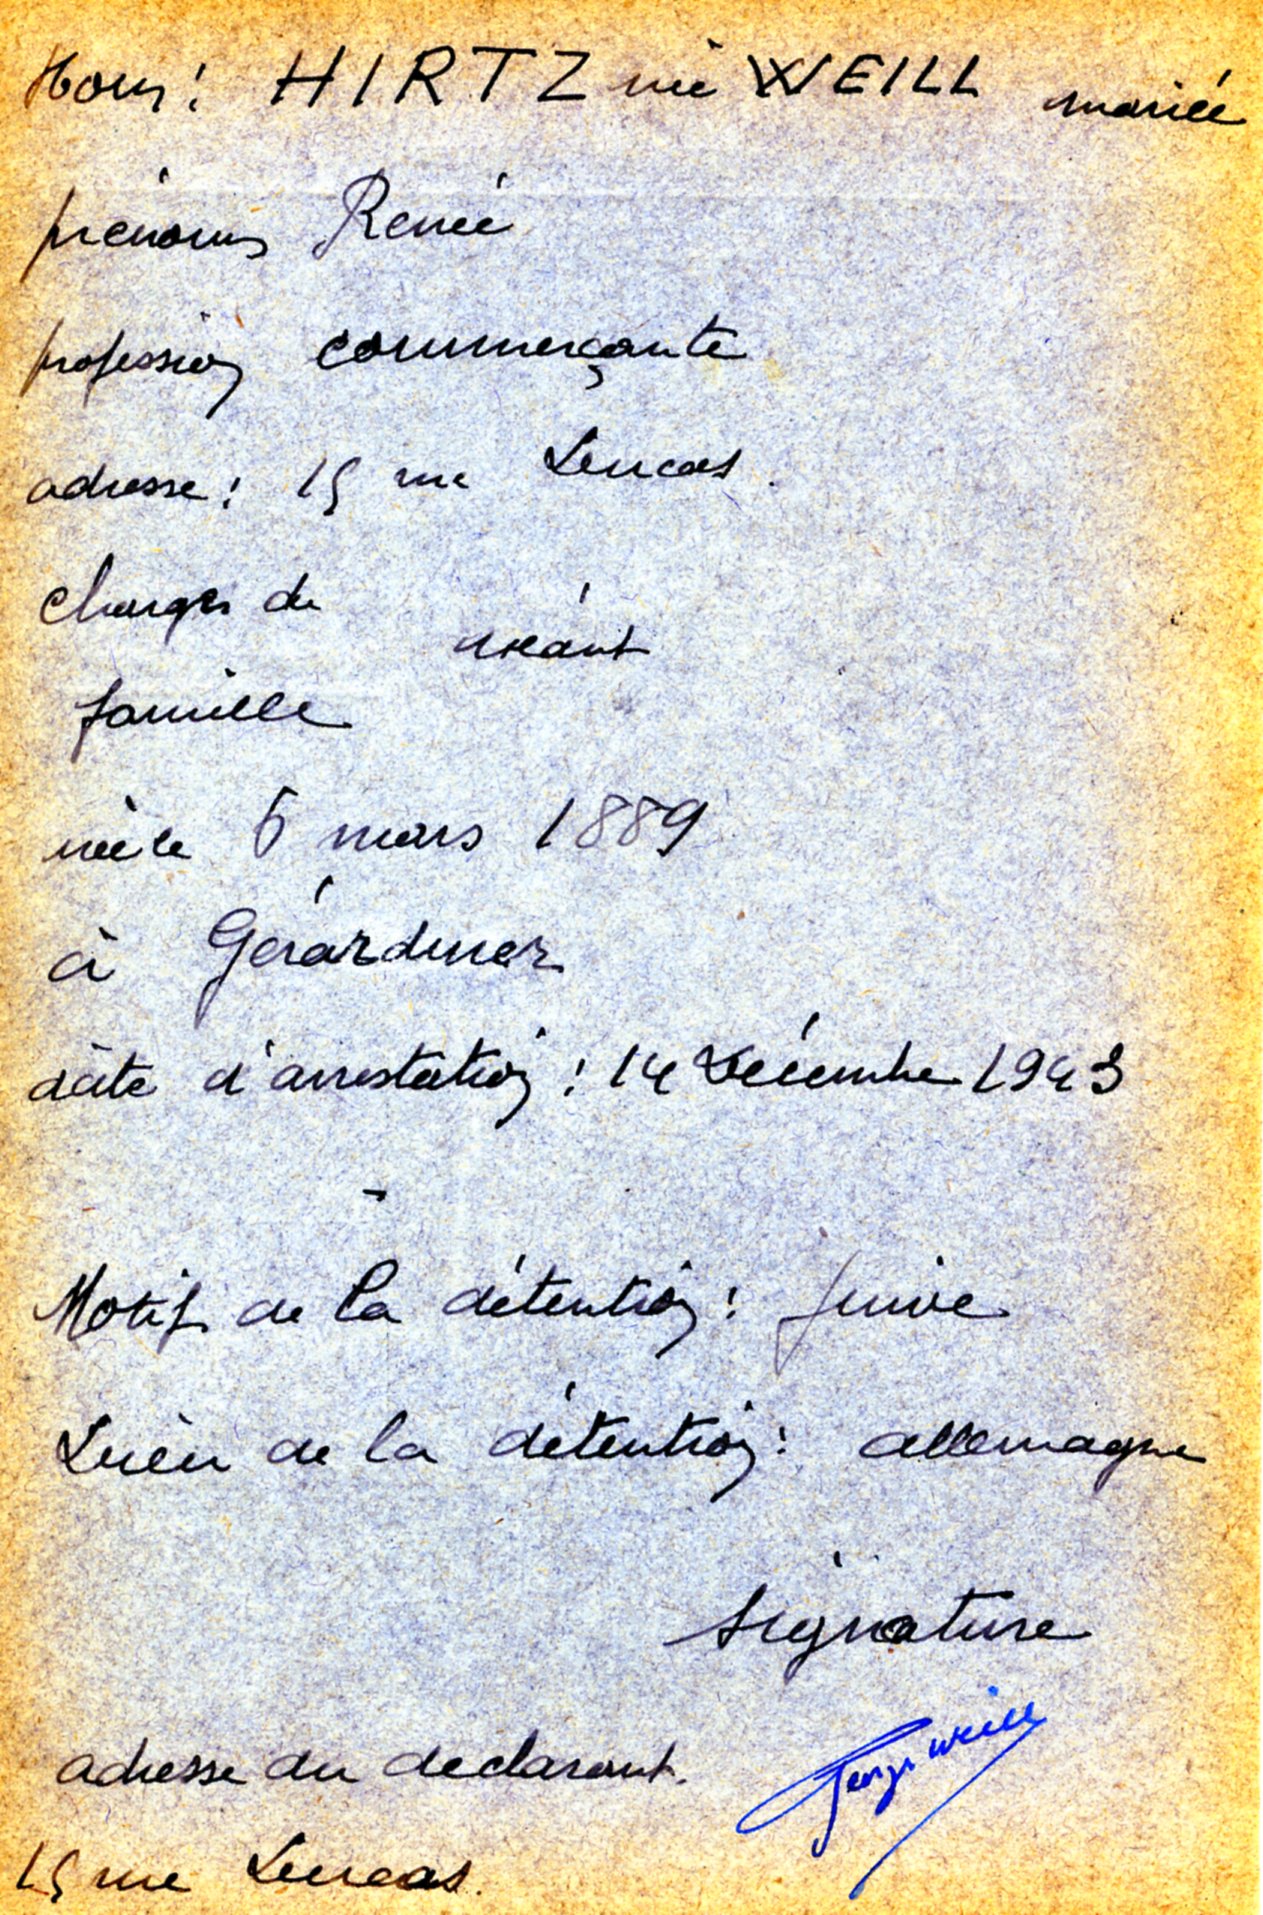 Nom : HIRTZ née WEILL mariée
prénoms Renée
profession commerçante
adresse : 15 rue Lucas.
Charges de
néant
famille
née le 6 mars 1889
à Gérardmer
date d'arrestation : 14 Décembre 1943
Motif de la détention : juive
Lieu de la détention : allemagne
signature
Georges Weill
adresse du declarant.
15 rue Lucas.